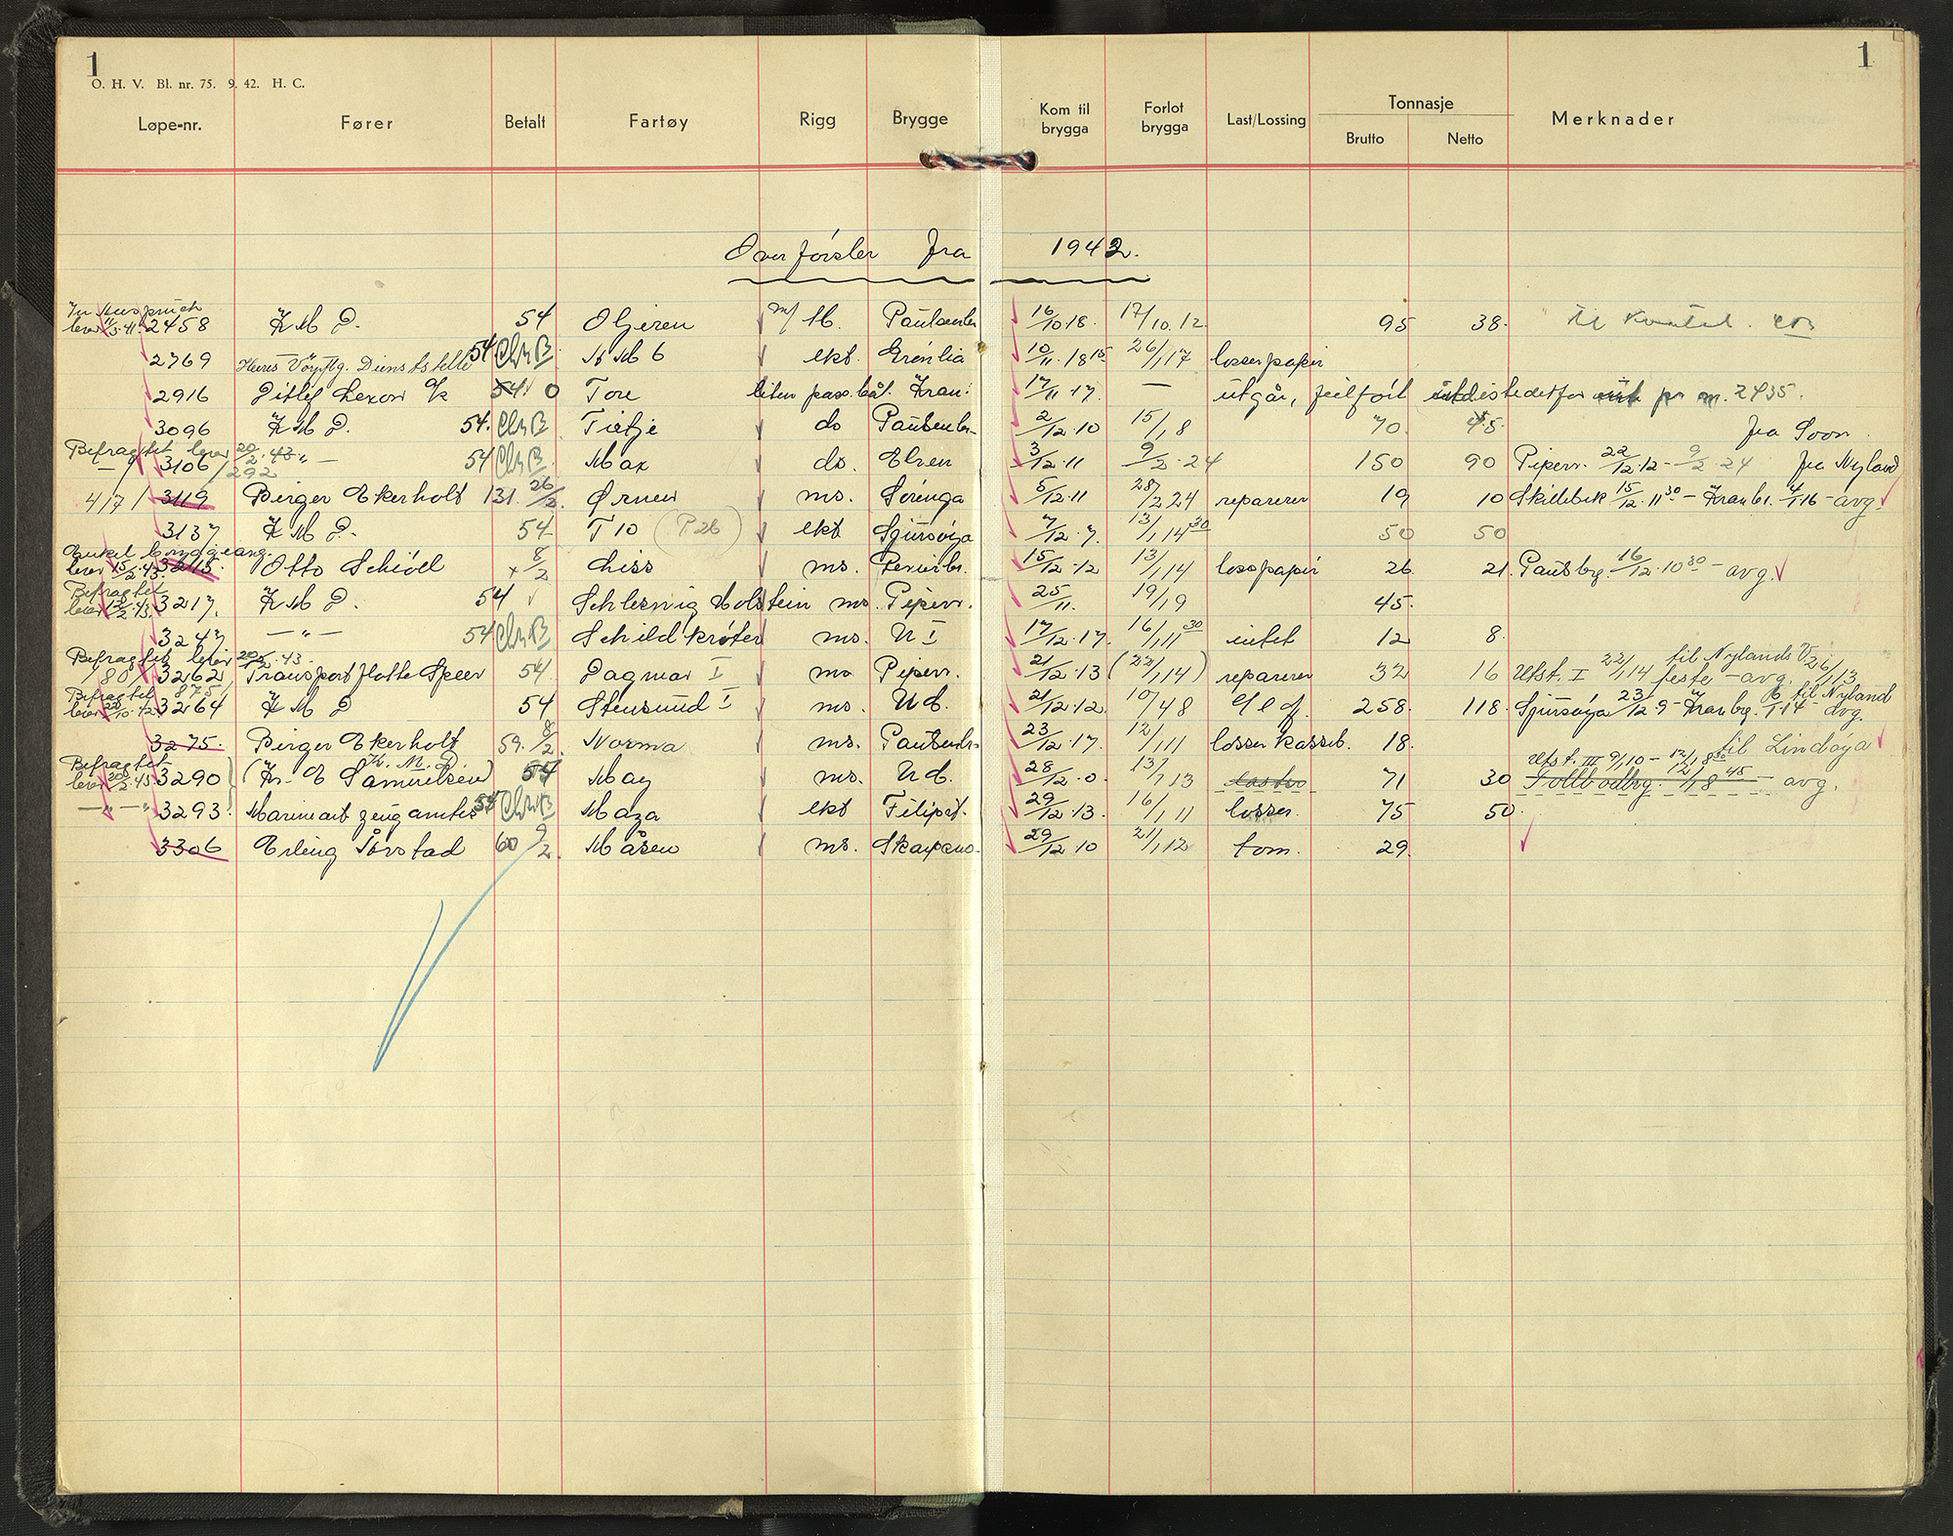 1 1
O. H. V. Bl. nr. 75. 9. 42. H. C.
Løpe-nr. Fører Betalt Fartøy Rigg Brygge Kom til brygga Forlot brygga Last/Lossing Tonnasje Brutto Netto Merknader
Overførsler fra 1942.
2458 K M D. 54 M. 16/10 18. 17/10. 12. 95 38.
2769 54 ChrB ekt. Grønlia 10/11. 18 15 26/1 17 losser papir
2916 Ditlef Lexow 54 0 Tore liten pass. båt. Kran 17/11. 17. — utgår, feilført istedetfor 2435.
3096 K M D. 54. ChrB Tietje do 2/12. 10 15/1 8 70. 45. fra Soon
Befragtet lever 20/2. 43.
— 3106 / 292 — " — 54 ChrB Max do. Elven 3/12. 11 9/2. 24 150 90 Piperv. 22/12. 12 - 9/2 24 fra Nyland
417 / 3119 Birger Ekerholt 131. 26/2. Ørnen ms. Sørenga 5/12. 11 28/2 24 reparerer 19 10 Skillebek 15/12. 11 30 - Kranbr. 4/1 16 - avg.
3137 K M D. 54 T 10 (P 26) ekt Sjursøya 7/12. 7. 13/1 14 30 50 50
lever 15/2. 43. 3215. Otto Schiøll x 8/2 Liss ms. 15/12. 12 13/1 14 loss papir 26 21. Paulsbrg. 16/12. 10 30 - avg.
Befragtet
3217. K M D. 54 Schleswig Holstein ms. Piperv. 25/11. 19/1 9 45.
3247 — " — 54 ChrB Schildkrøter ms. U I 17/12. 17. 16/1 11 30 intet 12 8.
Befragtet lever 20/2. 43. til Nylands V. 26/1 13
/ 80 / 3262 Transportflotte Speer 54 Dagmar I ms Piperv. 21/12. 13 (22/1 14) reparerer 32 16 Utst. I 22/1 14 feste - avg.
Befragtet 875 / til Nyland
3264 K M D 54 Stensund I ms. U d. 21/12. 12. 10/4 8 258. 118. Sjursøya 23/12. 9 - Kranbrg. avg.
3275. Birger Ekerholt 59. 8/2. Norma ms. 23/12. 17. 12/1 11 losser 18. til Lindøya
Befragtet K. M. D. Utst. III 9/10 -
3290 (Kr. E Samuelsen) 54 May ms. U d. 28/12. 0. 13/7 13 71 30 Tollbodbrg. 12/1 8 45 - avg.
— " — " 3293. 54 ChrB Maza ekt Filipst. 29/12. 13. 16/1 11 losser. 75 50.
3306 Erling 60 9/2. Måsen ms. 29/12. 10 21/1 12 tom. 29.